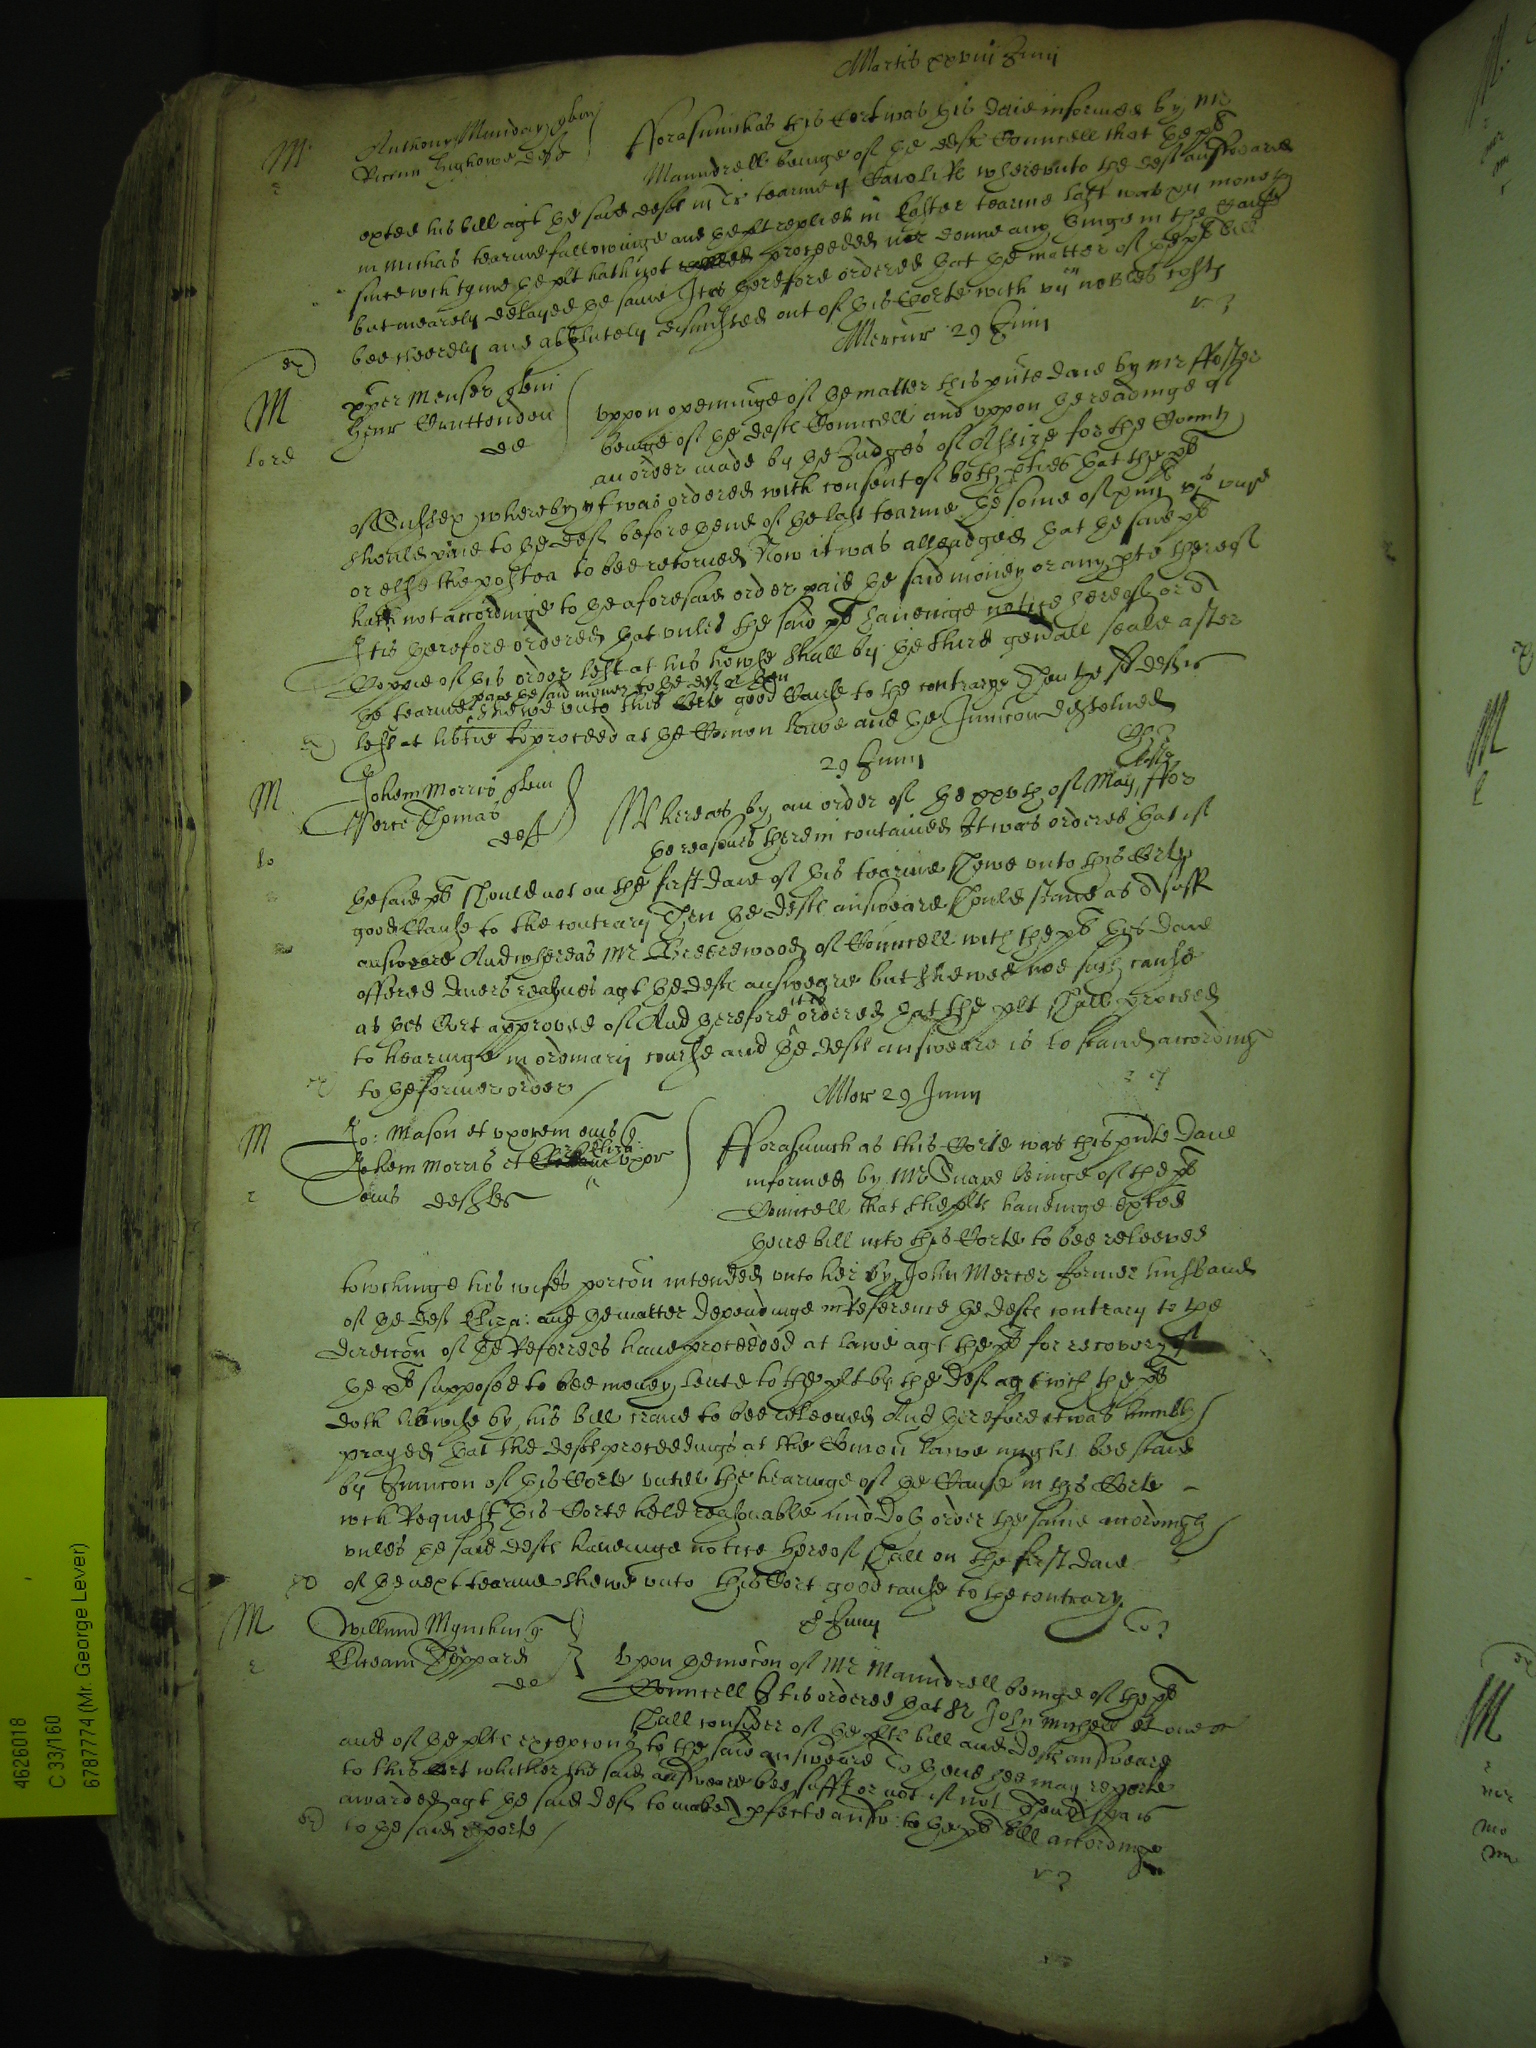 Martis xxviij Junij
M Anthony Munday quer
Forasmuch as this Cort was this daie informed by Mr
Maundrell beinge of the deft Councell that the plt
exted his bill agt the said deft in Tr tearme Caroli R whereunto the deft answeared
in Michas tearme followinge and the plt replied in Easter tearme last was xij moneth
since wch tyme the plt hath not proceeded nor donne any thinge in the cause
but mearely delayed the same It is therefore ordered that the matter of the plt bill
bee cleerely and absolutely dismissed out of this Corte with vij nobles costs
Mercur 29 Junij
M
Henr Cruttenden
de
lord
uppon openinge of the matter this pnte daie by Mr Foster
beinge of the deft Councell and uppon the readinge of
an order made by the Judges of Assize for the County
of Sussex whereby yt was ordered with consent of both pties that the plt
should paie to the deft before thend of the last tearme the some of
or else the postea to bee retorned Now it was alleadged that the said plt
hath not accordinge to the aforesaid order paid the said money or any pte thereof
It is therefore ordered that unles the said plt haveinge notice hereof or a
Coppie of this order left at his howse shall by the third genall seale after
paye the said money to the deft or then
the tearme shewe unto this Corte good Cause to the contrarye Then the sd deft is
left at libtie to proceed at the Comon lawe and the Junccon disolued
29 Junij
M Johem Morris quer
Perce Thomas
deft
Whereas by an order of the xxvth of May for
the reasons therein contained It was ordered that if
the said plt should not on the first daie of this tearme shewe unto this Corte
good Cause to the contrary Then the defts answeare should stand as a suff
answeare And whereas Mr Greenewood of Councell with the plt this daie
offered divers reasones agt the defts answeare but shewed noe such cause
as this Cort approved of And therefore it is ordered that the plt shall proceed
to hearinge in ordinary course and the defts answeare is to stand accordinge
to the former order
Mer 29 Junij
M Jo: Mason et uxorem eius q
Johem Morris et Eliza: uxor
eius defts
Forasmuch as this Corte was this pnte daie
informed by Mr beinge of the plt
Councell that the plts haveinge exted
there bill into this Corte to bee releeved
towchinge his wifes porcon intended unto her by John Mercer former husband
of the deft Eliza: and the matter dependinge in Reference the defts contrary to the
direccon of the Referrees have proceeded at lawe agt the plt for recovery of
the plt supposed to bee money lente to the plt by the deft agt wch the plt
doth likewise by his bill crave to bee releeved And therefore it was humbly
prayed that the defts proceedings at the Comon lawe might bee staid
by Junccon of this Corte untill the hearinge of the Cause in this Corte
wch Request this Corte held reasonable and doth order the same accordingly
unles the said defts haveinge notice hereof shall on the first daie
of the next tearme shewe unto this Cort good cause to the contrary
M Willmum Mynchin q
8 Junij
de
Upon the mocon of Mr Maundrell beinge of the plt
Councell It is ordered that Sr John Michell
shall consider of the plts bill and defts answeare
and of the plts excepcons to the said answeare To thend hee may reporte
to this Cort whither the said answeare bee suffic or not if not Then a is
awarded agt the said deft to make a pfecte answ: to the plt bill accordinge
to the said reporte
4626018
C 33/160
6787774 (Mr. George Lever)